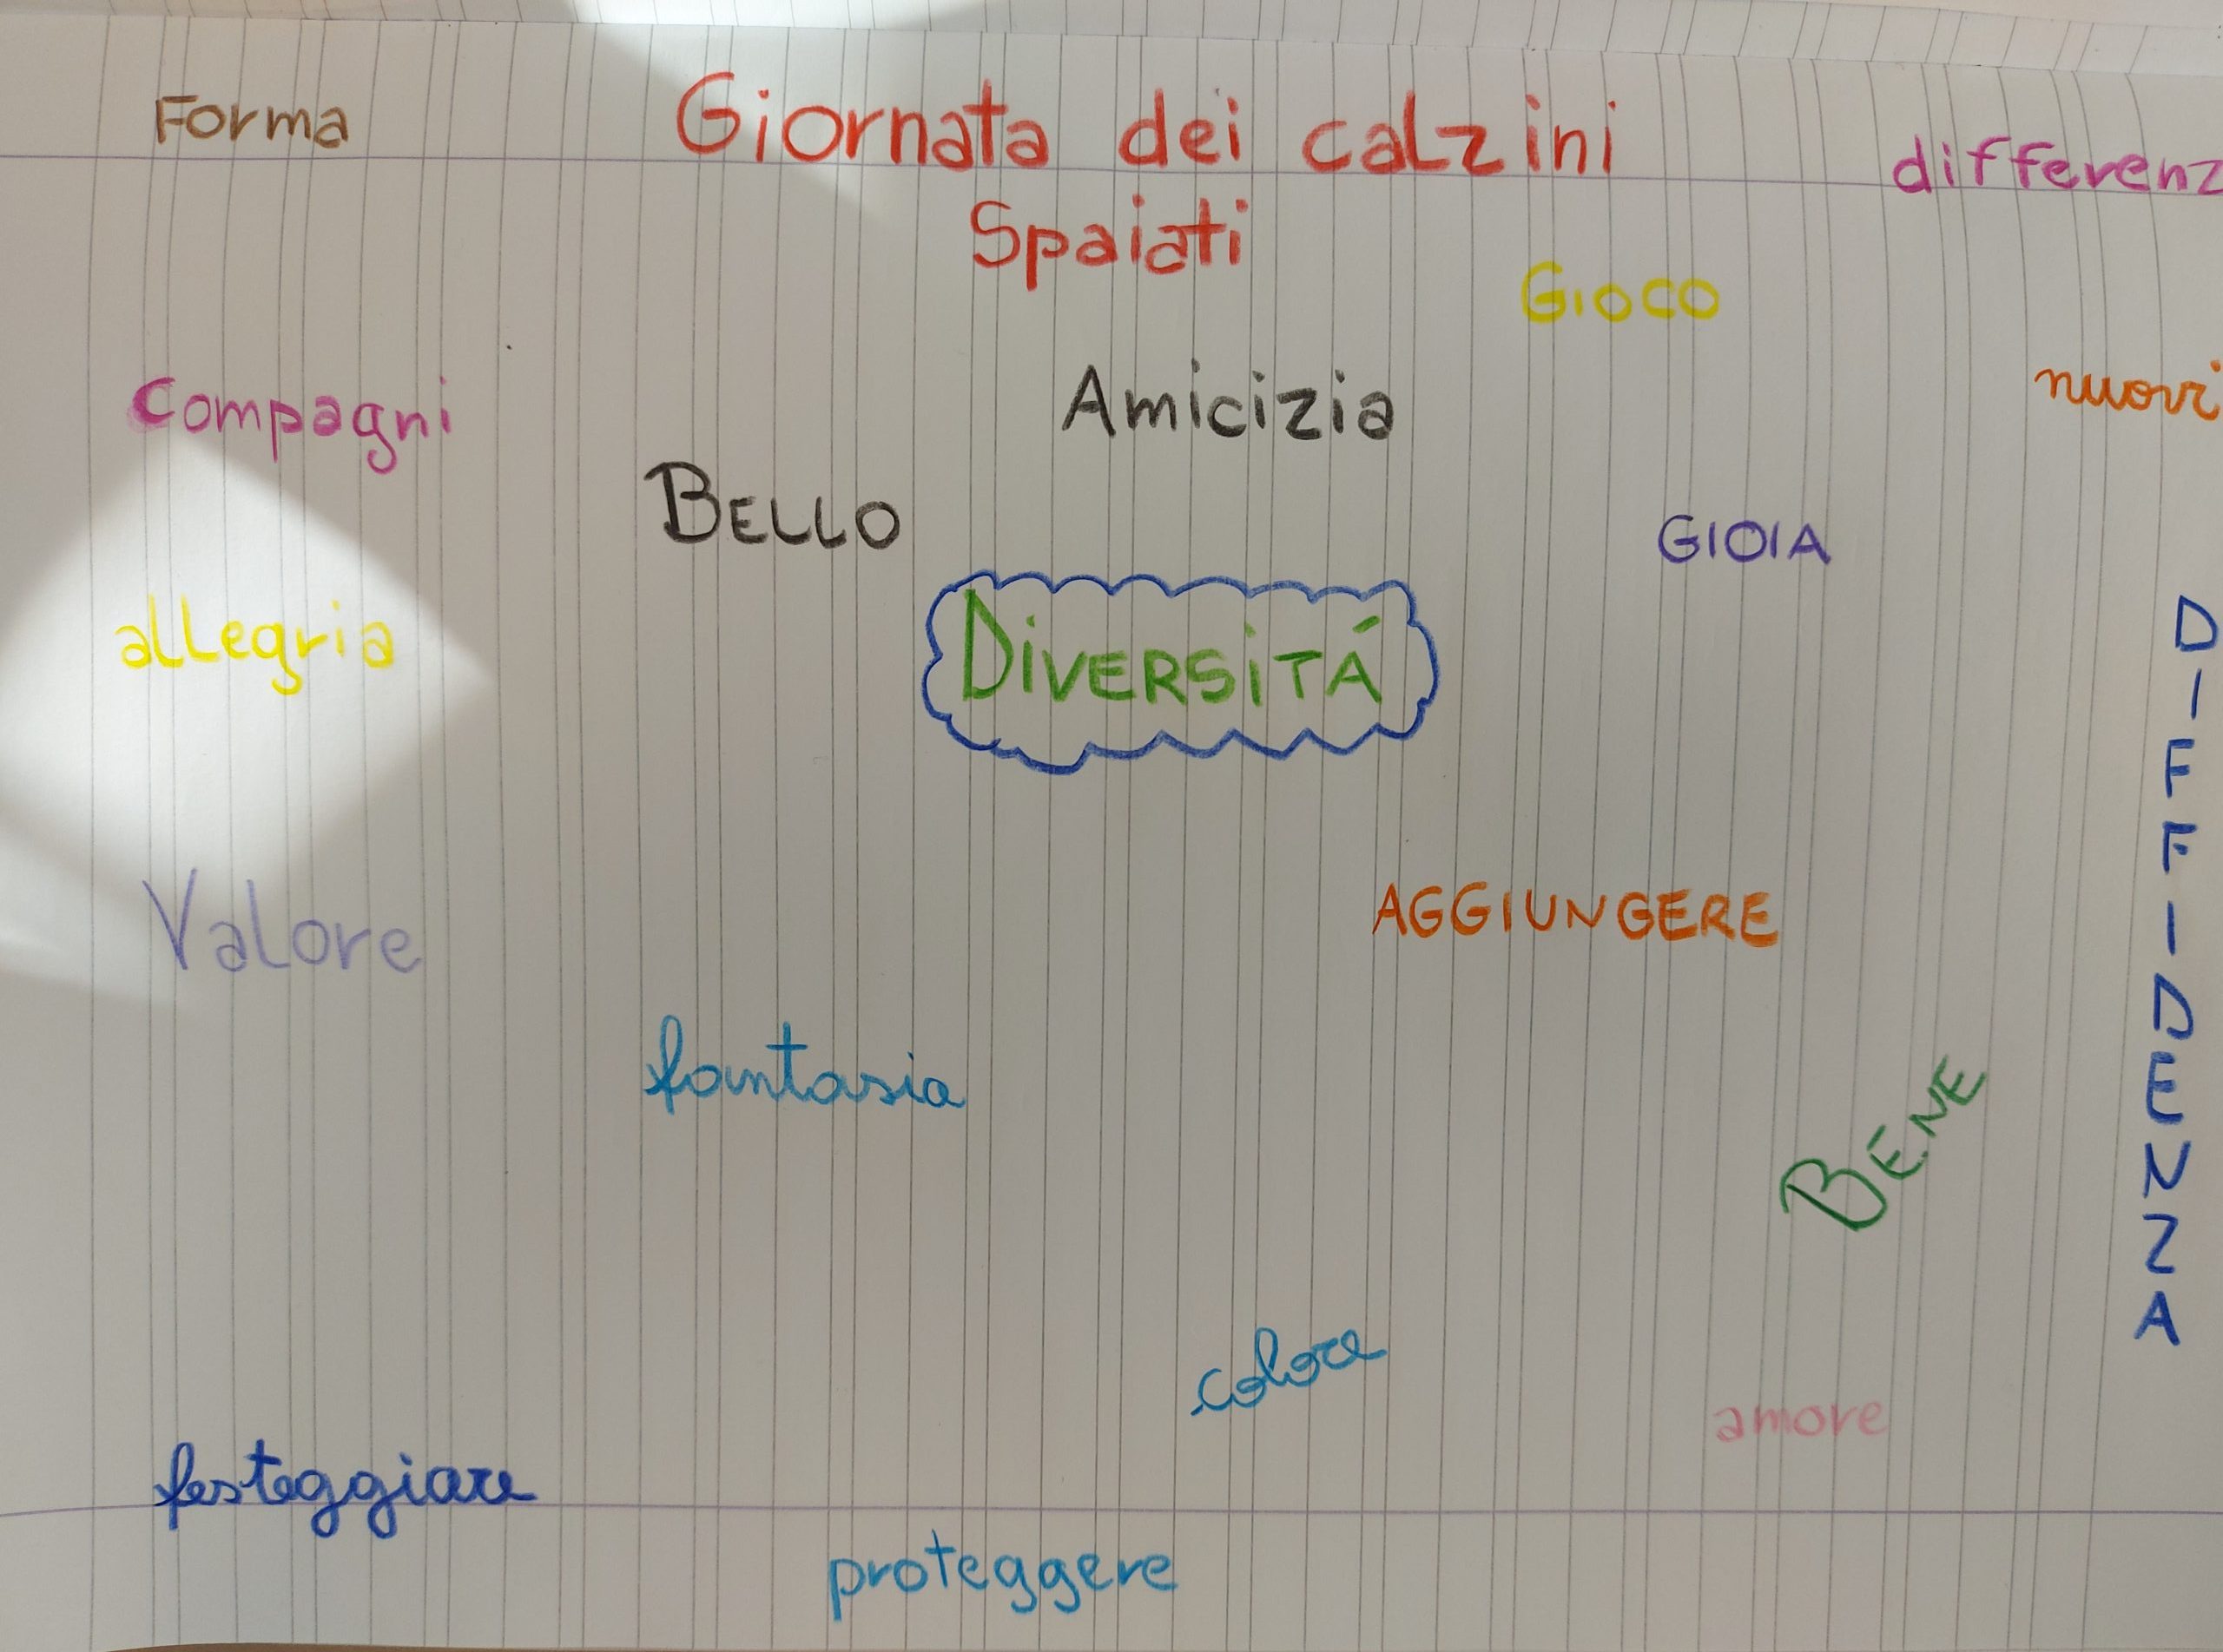 Forma
Giornata dei calzini
Spaiati
differenz
Gioco
nuovi
Compagni
Amicizia
BELLO
GIOIA
allegria
DiVERSiTÁ
DIFFIDENZA
Valore
AGGIUNGERE
fantasia
BENE
colore
amore
festeggiare
proteggere